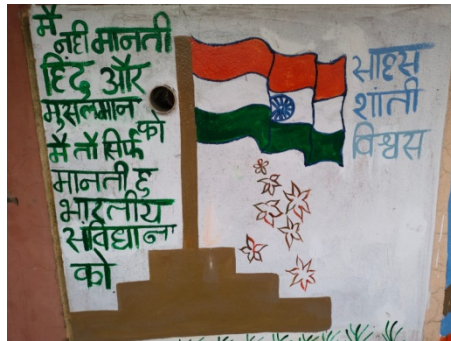 मै
नही मानती
हिंदु और
मुसलमान को
मै तो सिर्फ
मानती हु
भारतीय
सविधाना
को
साहस
शांती
विश्वस